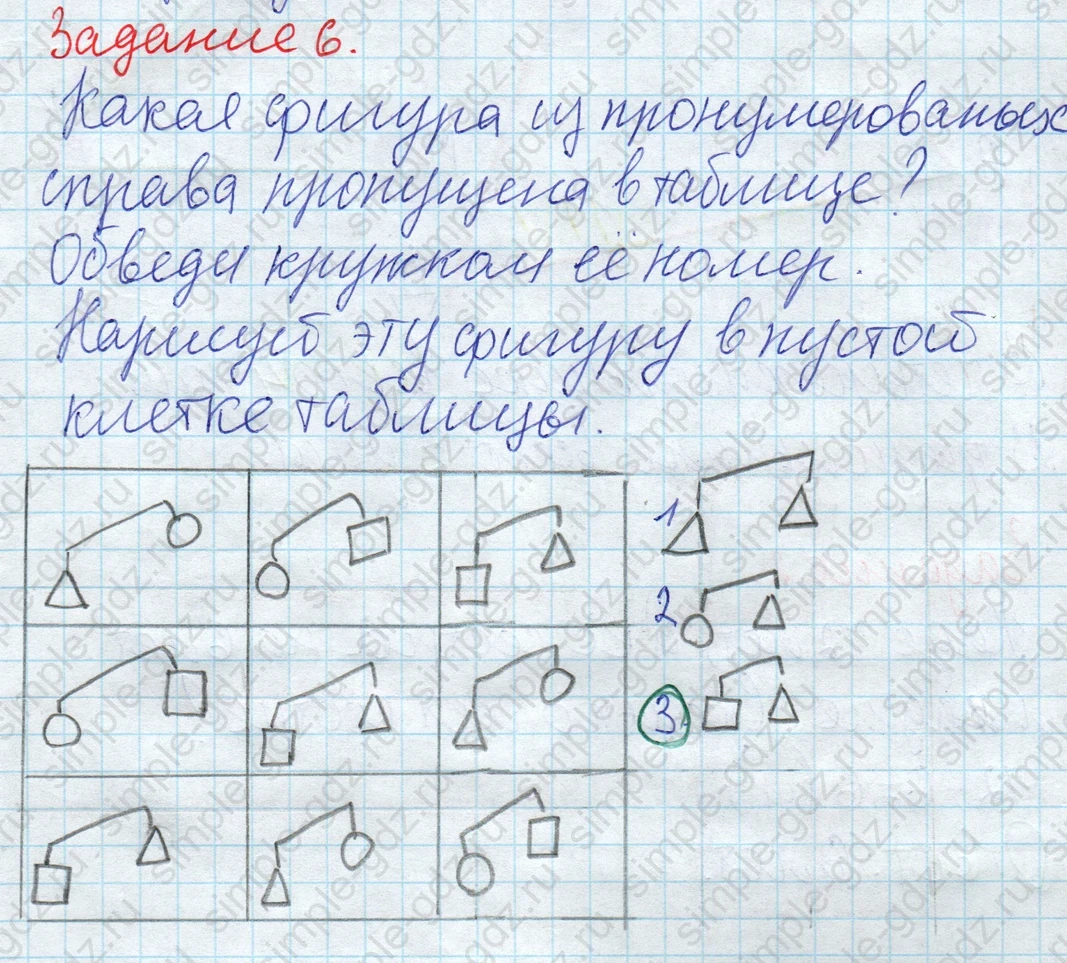 Задание 6.
Какая фигура из пронумерованых
справа пропущена в таблице?
Обведи кружком её номер.
Нарисуй эту фигуру в пустой
клетке таблицы.
1
2
3
simple-gdz.ru